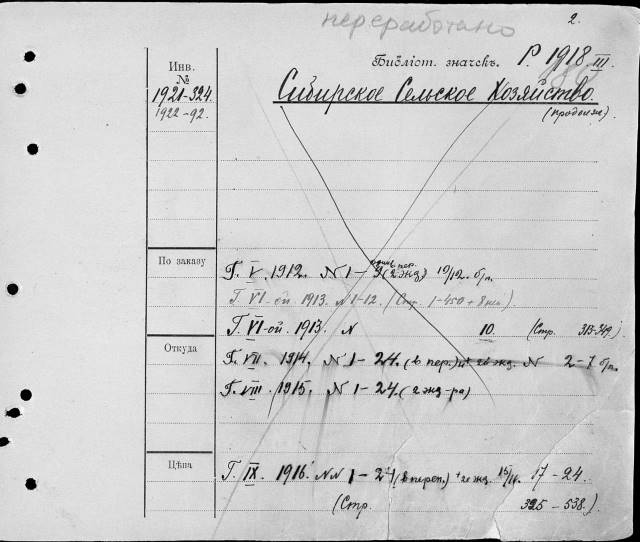 переработано
2.
Библіот. значекъ. Р 1918 III.
Инв.
№
1921-324
1922-92.
Сибирское Сельское Хозяйство.
(продолж)
По заказу
Г. V. 1912. N 1-9 (2 экз) 10/12. б/п.
Г. VI-ой. 1913. N 1-12. (Стр. 1-450 +
Г. VI-ой. 1913. N 10. (Стр. 313-349)
Откуда
Г. VII. 1914. N 1-24. (в пер.) + 2й экз. N 2-7 б/п.
Г. VIII. 1915. N 1-24. (2 экз-ра)
Цѣна
Г. IX. 1916. NN 1-24 (в переп.) + 2й экз. 17-24.
(Стр. 325-538.)